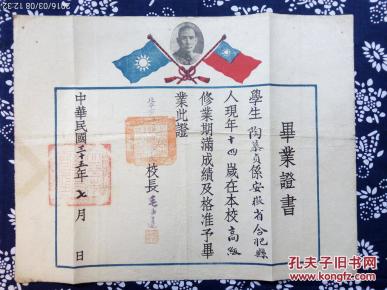 2016/03/08 12:32
畢業證書
學生陶慕貞係安徽省合肥縣
人現年十四歲在本校高級
修業期滿成績及格准予畢
業此證
校長
中華民國三十五年七月 日
孔夫子旧书网